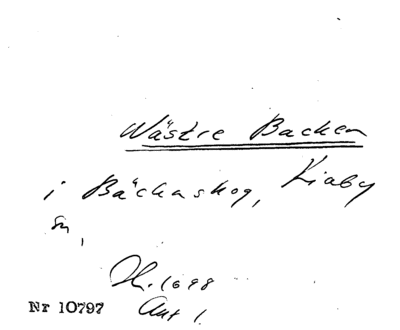 Wästre Backen
i Bäckaskog, Kiaby
sn,
H. 1698
Akt 1.
Nr 10797